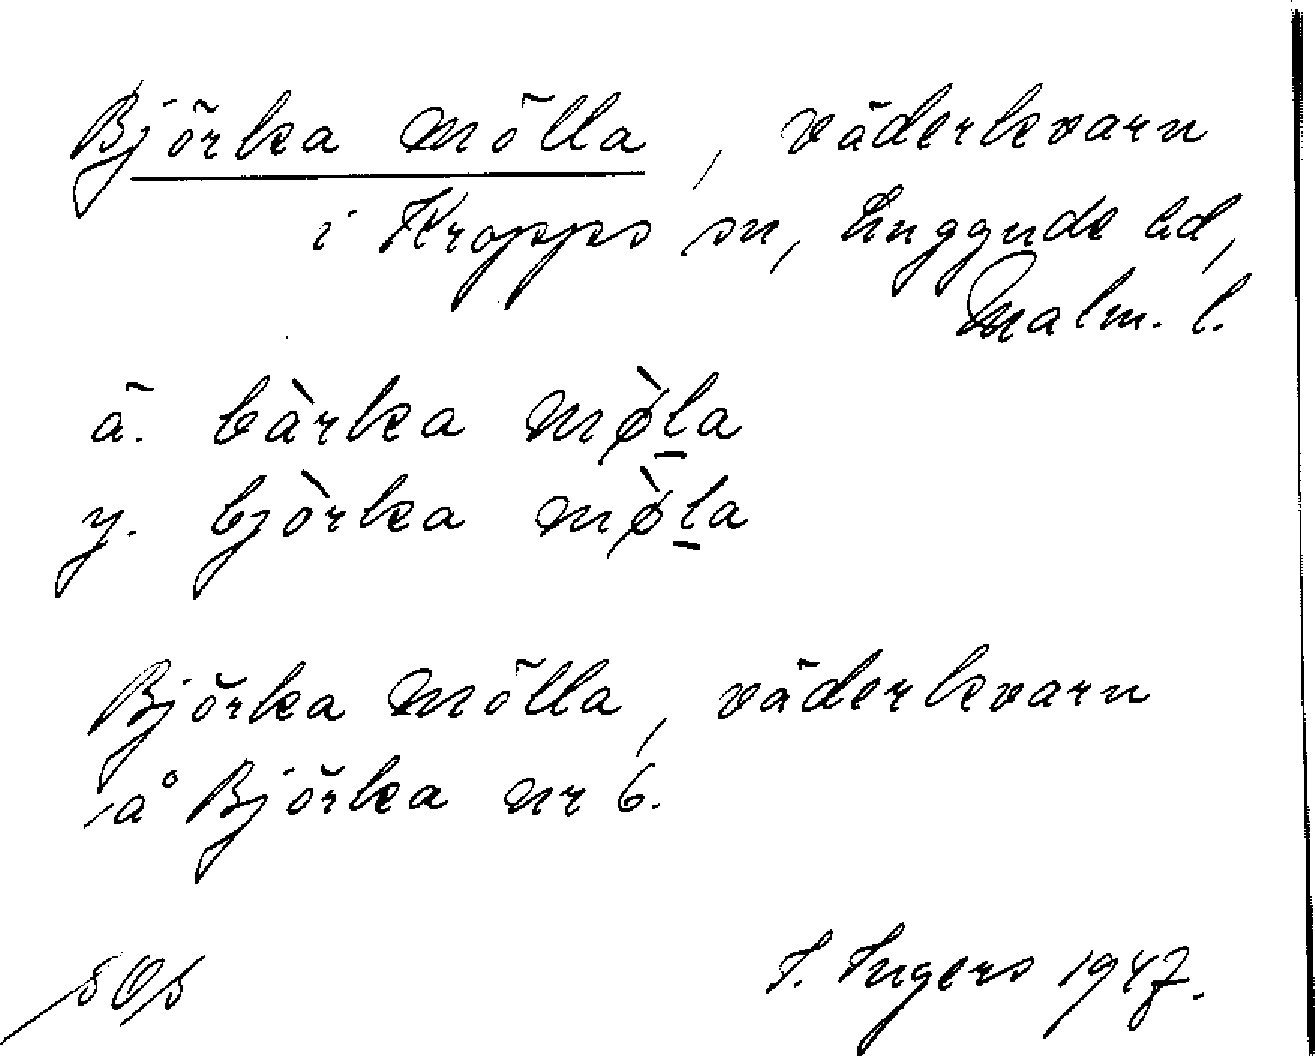 Björka mölla, väderkvarn
i Kropps sn, Luggude hd,
Malm. l.
ä. bàrka mø̀la
y. bjòrka mø̀la
Björka mölla, väderkvarn
å Björka nr 6.
I. Ingers 1947.